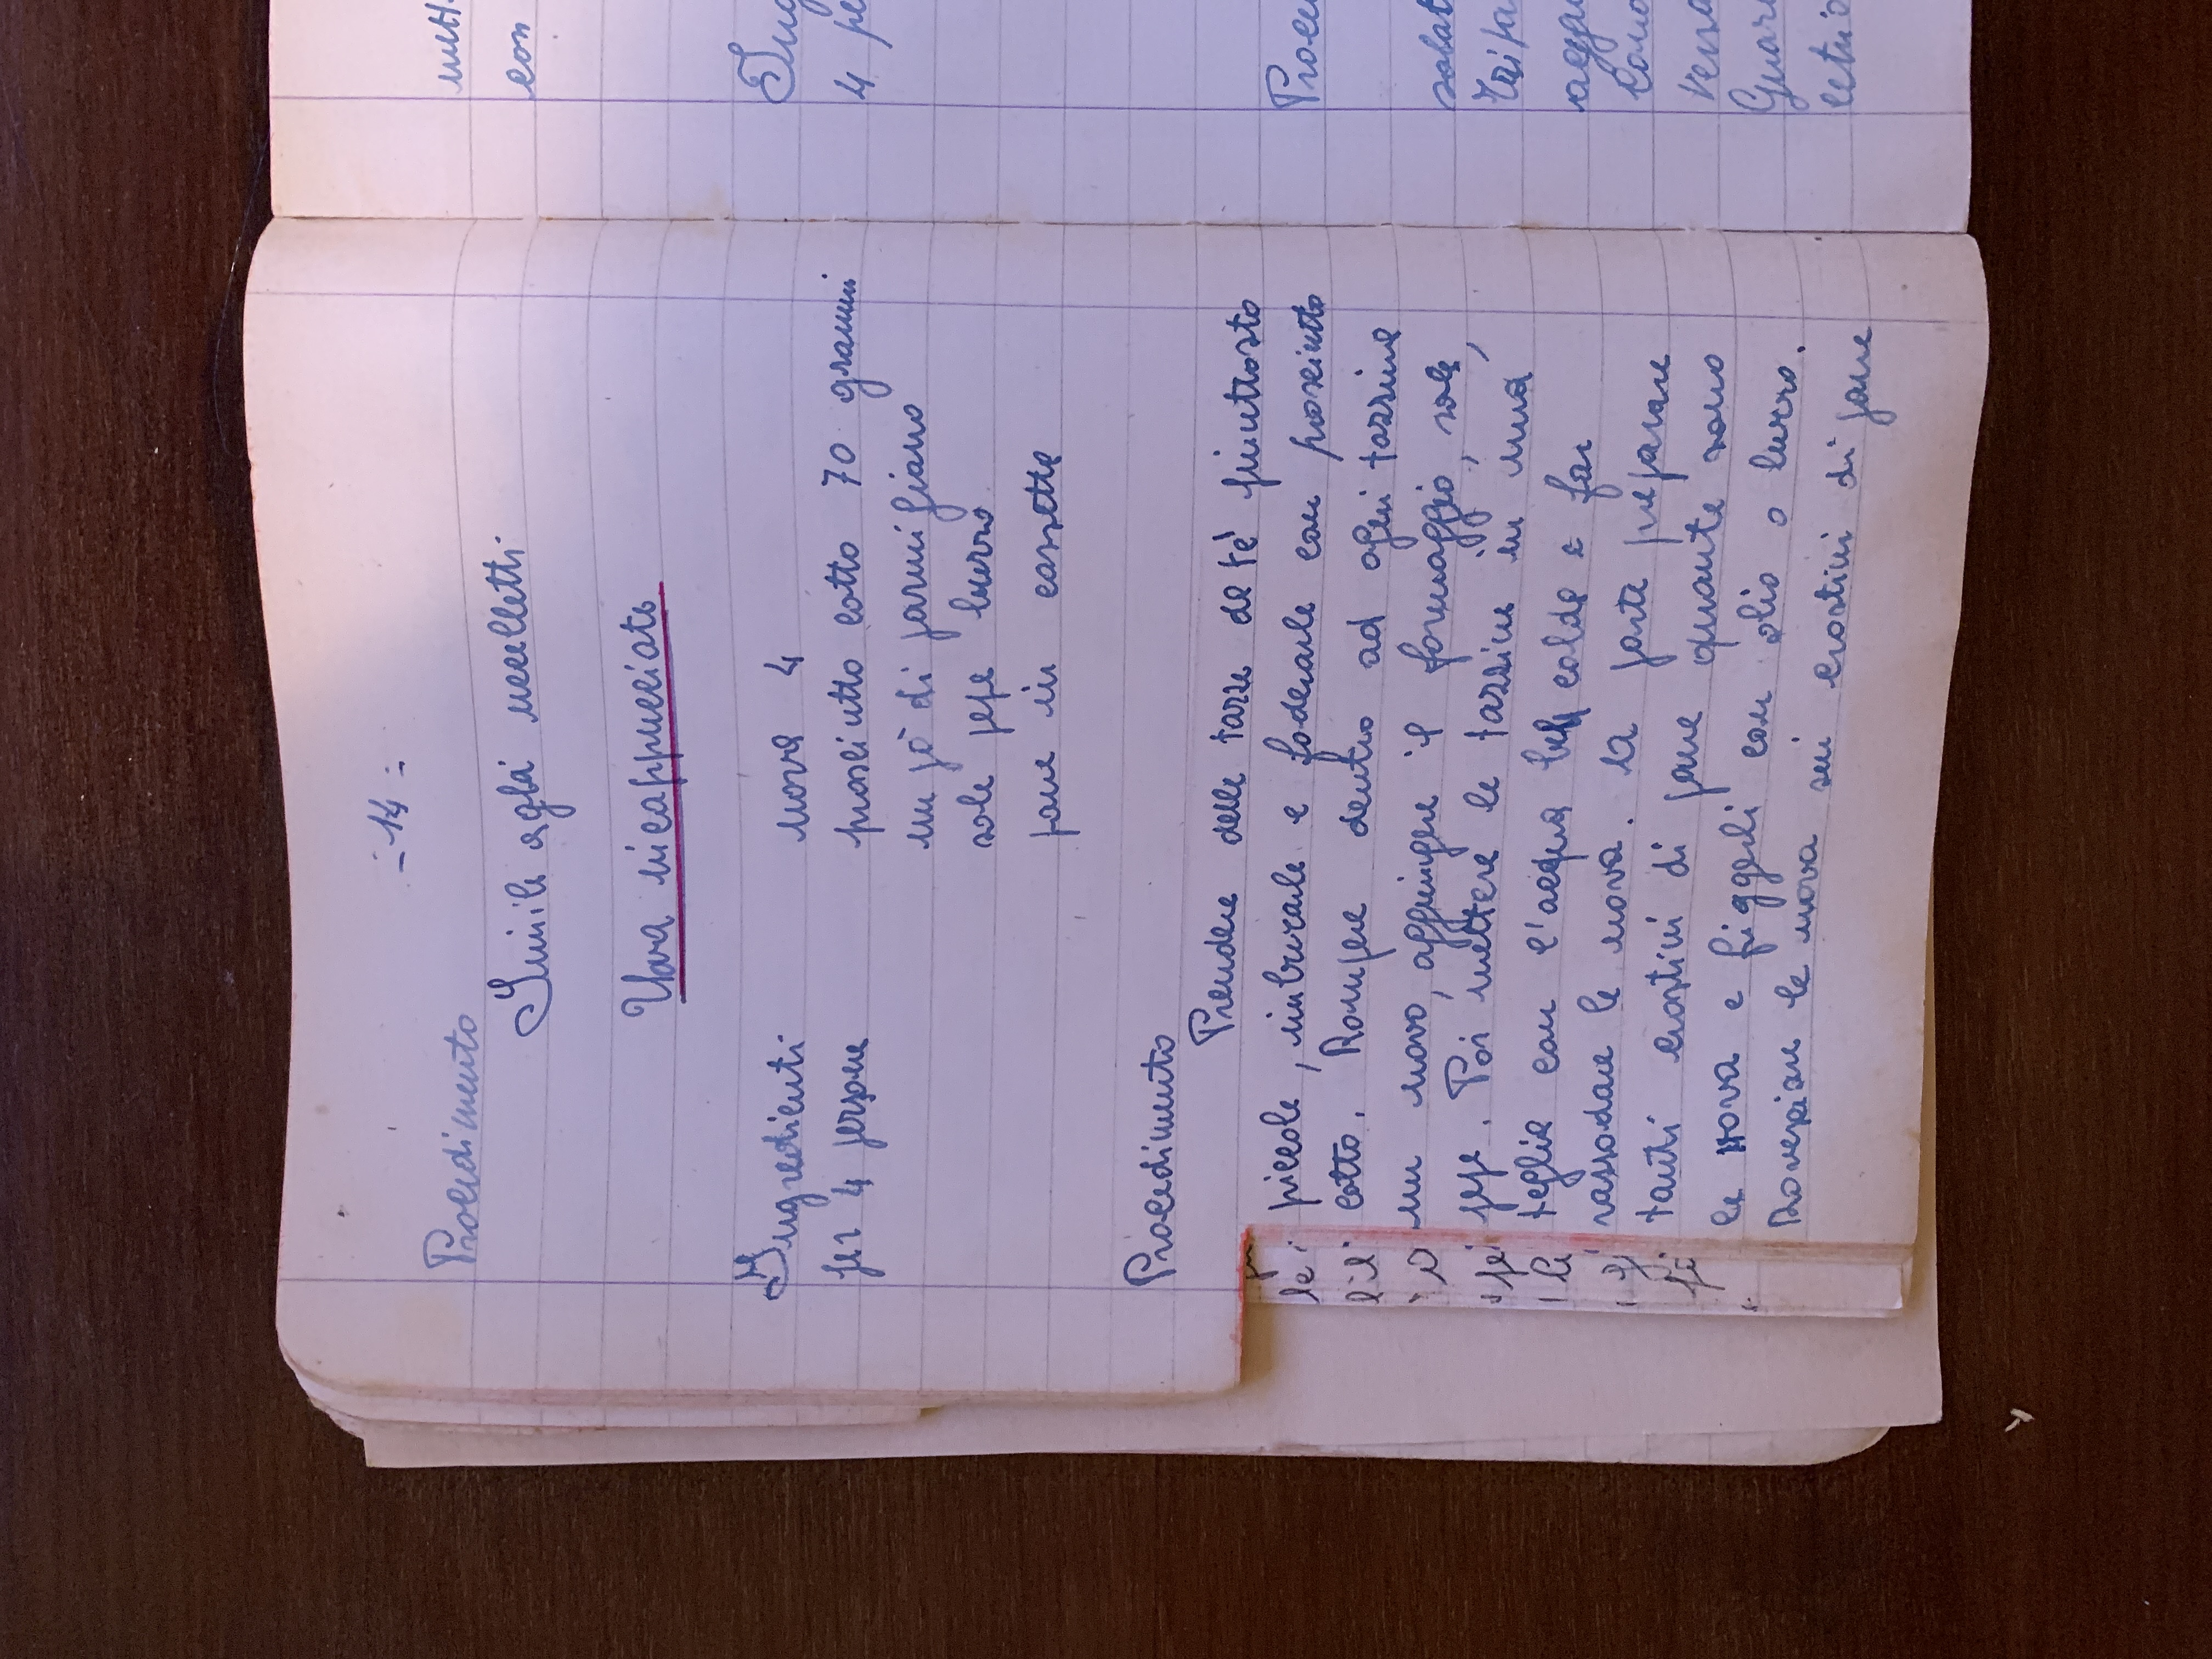 - 14 -
Procedimento
Simile agli uccelletti
Uova incappucciate
Ingredienti
per 4 persone
uova 4
prosciutto cotto 70 grammi
un pò di parmigiano
sale pepe burro
pane in cassette
Procedimento
Prendere delle tazze da tè piuttosto
piccole, imburrarle e foderarle con prosciutto
cotto. Rompere dentro ad ogni tazzina
un uovo, aggiungere il formaggio, sale,
pepe. Poi mettere le tazzine in una
teglia con l'acqua ben calda e far
rassodare le uova. A parte preparare
tanti crostini di pane quante sono
le uova e friggerli con olio o burro.
Rovesciare le uova sui crostini di pane
con
4